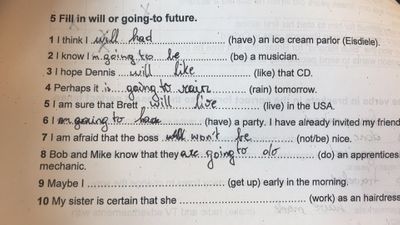 5 Fill in will or going-to future.
1 I think I will had (have) an ice cream parlor (Eisdiele).
2 I know I m going too be (be) a musician.
3 I hope Dennis will like (like) that CD.
4 Perhaps it is going to rain (rain) tomorrow.
5 I am sure that Brett will live (live) in the USA.
6 I m going to have (have) a party. I have already invited my friend
7 I am afraid that the boss will won't be (not/be) nice.
8 Bob and Mike know that they are going to do (do) an apprentices
mechanic.
9 Maybe I (get up) early in the morning.
10 My sister is certain that she (work) as an hairdress